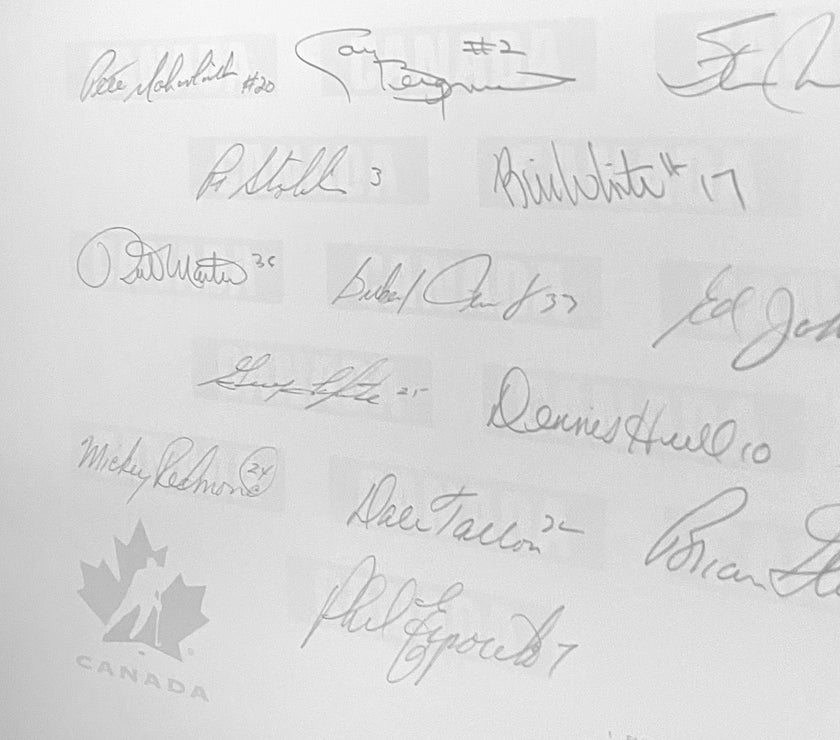 Pete Mahovlich #20
Gary Bergman #2
Pat Stapleton 3
Bill White #17
Pit Martin 36
Gilbert Perreault 33
Ed Joh
Guy Lapointe 25
Dennis Hull 10
Mickey Redmond 24
Dale Tallon 32
Brian Gle
Phil Esposito 7
CANADA